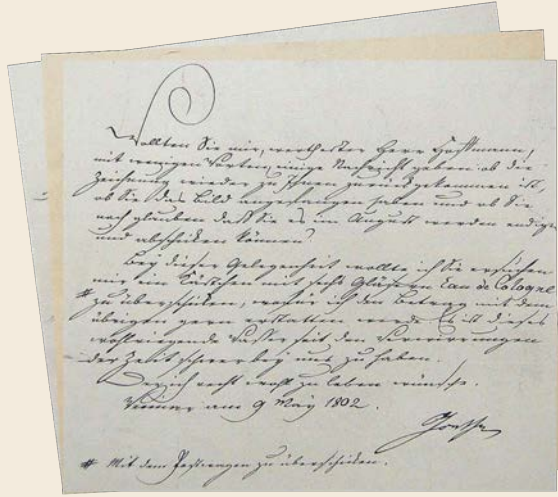 Wollten Sie mir, werthester Herr Hoffmann,
mit wenigen Worten, einige Nachricht geben: ob die
Zeichnung wieder zu Ihnen zurückgekommen ist,
ob Sie das Bild angefangen haben und ob Sie
noch glauben daß Sie es im August werden endigen
und abschicken können?
Bey dieser Gelegenheit wollte ich Sie ersuchen
mir ein Kästchen mit sechs Gläsern Eau de Cologne
# zu überschicken, wofür ich den Betrag mit dem
übrigen gern erstatten werde. Es ist dieses
wohlriechende Wasser seit den Verwirrungen
der Zeit schwer bey uns zu haben.
Der ich recht wohl zu leben wünsche.
Weimar am 9 May 1802.
Goethe
# Mit dem Postwagen zu überschicken.